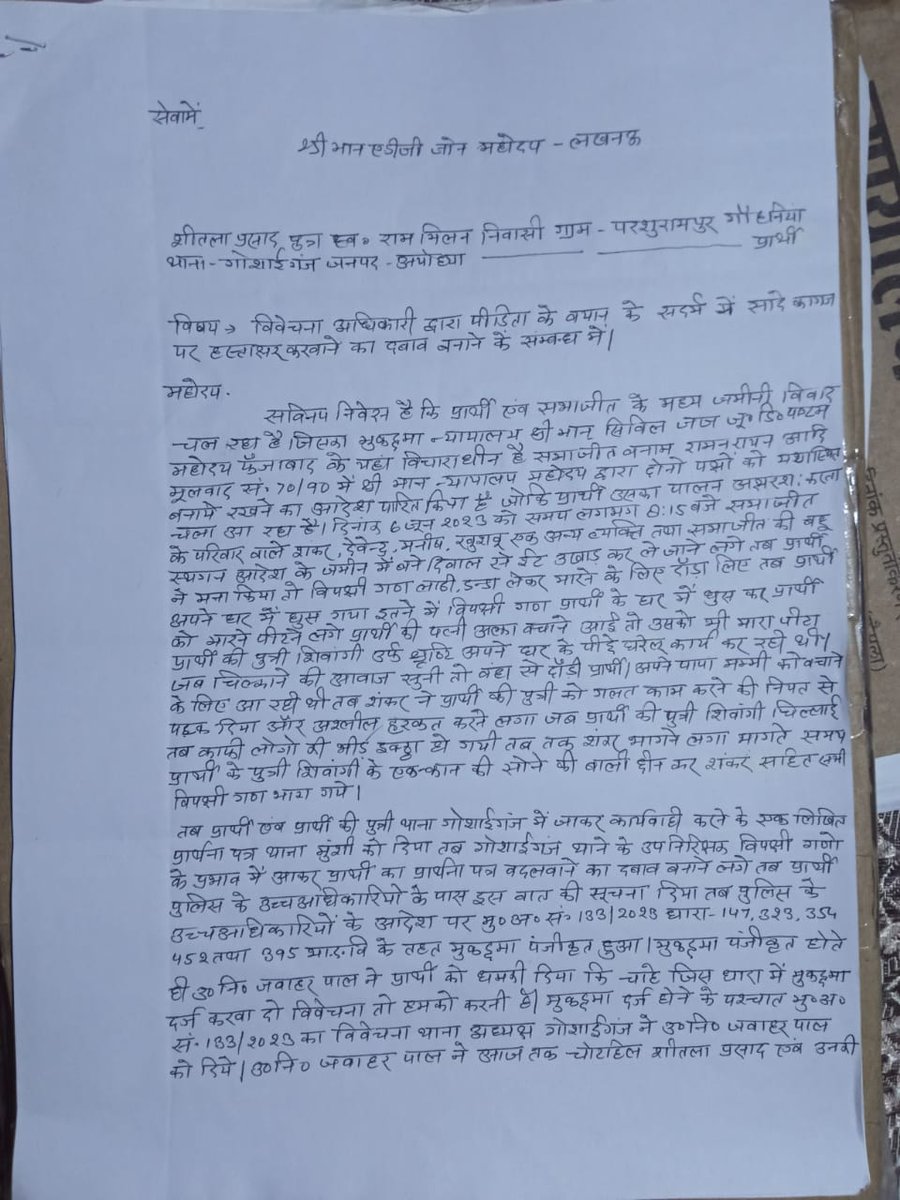 सेवामें,
श्रीमान एडीजी जोन महोदय - लखनऊ
शीतला प्रसाद पुत्र स्व० राम मिलन निवासी ग्राम - परशुरामपुर गौहनिया
थाना - गोशाईगंज जनपद - अयोध्या ——— ——— प्रार्थी
विषय → विवेचना अधिकारी द्वारा पीडिता के वयान के सदर्भ में सादे कागज
पर हस्ताक्षर करवाने का दबाव बनाने के संम्बन्ध में।
महोदय.
सविनय निवेदन है कि प्रार्थी एवं सभाजीत के मध्य जमीनी विवाद
चल रहा है। जिसका मुकद्दमा न्यायालय श्री भान सिविल जज जू० डि० पष्टम
महोदय फैजाबाद के यहां विचाराधीन है सभाजीत वनाम रामनरायन आदि
मूलवाद सं० 70/90 में श्री भान न्यायालय महोदय द्वारा दोनो पक्षों को यथास्थिति
बनाये रखने का आदेश पारित किया है जोकि प्रार्थी उसका पालन अक्षरश: करता
चला आ रहा है। दिनांक 6 जून 2023 को समय लगभग 8:15 बजे सभाजीत
के परिवार वाले शंकर, देवेन्द्र, मनीष, खुशबू एक अन्य व्यक्ति तथा सभाजीत की बहू
स्थगन आदेश के जमीन में बने दिवाल से ईट उखाड़ कर ले जाने लगे तब प्रार्थी
ने मना किया तो विपक्षी गण लाठी, डन्डा लेकर मारने के लिए दौड़ा लिए तब प्रार्थी
अपने घर में घुस गया इतने में विपक्षी गण प्रार्थी के घर में घुस कर प्रार्थी
को मारने पीटने लगे प्रार्थी की पत्नी अल्का बचाने आई तो उसको भी मारा पीटा
प्रार्थी की पुत्री शिवांगी उर्फ अपने घर के पीछे घरेलू कार्य कर रही थी।
जब चिल्लाने की आवाज सुनी तो वहा से दौडी प्रार्थी। अपने पापा मम्मी को वचाने
के लिए आ रही थी तब शंकर ने प्रार्थी की पुत्री को गलत काम करने की नियत से
पटक दिया और अश्लील हरकत करने लगा जब प्रार्थी की पुत्री शिवांगी चिल्लाई
तब काफी लोगो की भीड इक्ठ्ठा हो गयी तब तक शंकर भागने लगा भागते समय
प्रार्थी के पुत्री शिवांगी के एक कान की सोने की बाली छीन कर शंकर सहित सभी
विपक्षी गण भाग गये।
तब प्रार्थी एंव प्रार्थी की पुत्री थाना गोशाईगंज में जाकर कार्यवाही करने के एक लिखित
प्रार्थना पत्र थाना मुंशी को दिया तब गोशाईगंज थाने के उप निरिक्षक विपक्षी गणो
के प्रभाव में आकर प्रार्थी का प्रार्थना पत्र वदलवाने का दबाव बनाने लगे तब प्रार्थी
पुलिस के उच्चआधिकारियों के पास इस वात की सूचना दिया तब पुलिस के
उच्चआधिकारियों के आदेश पर मु० अ० सं० 133/2023 धारा- 147, 323, 354
452 तथा 395 भा.द.वि के तहत मुकद्दमा पंजीकृत हुआ। मुकद्दमा पंजीकृत होते
ही उ० नि० जवाहर पाल ने प्रार्थी को धमकी दिया कि चाहे जिस धारा में मुकद्दमा
दर्ज करवा दो विवेचना तो हमको करनी है। मुकद्दमा दर्ज होने के पश्चात मु० अ०
सं० 133/2023 का विवेचना थाना अध्यक्ष गोशाईगंज ने उ० नि० जवाहर पाल
को दिये। उ० नि० जवाहर पाल ने आज तक चोटहिल शीतला प्रसाद एंव उनकी